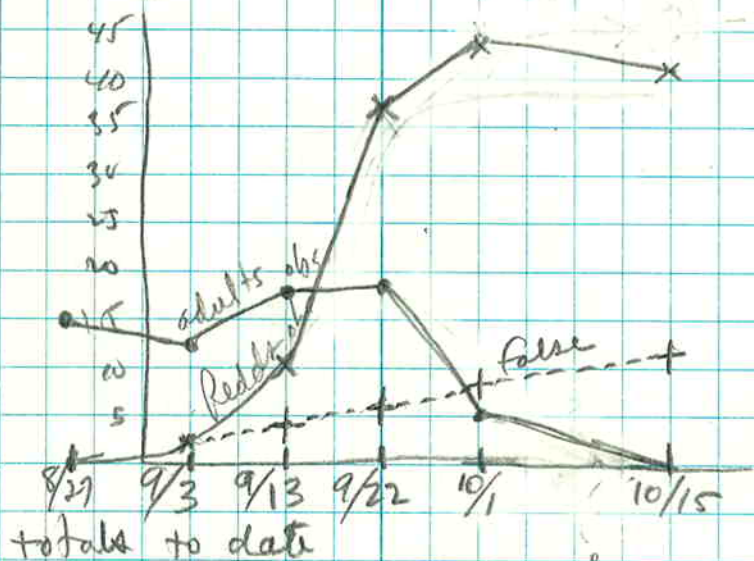 45
40
35
30
25
20
15
10
5
adults obs
Redds
False
8/27 9/3 9/13 9/22 10/1 10/15
totals to date